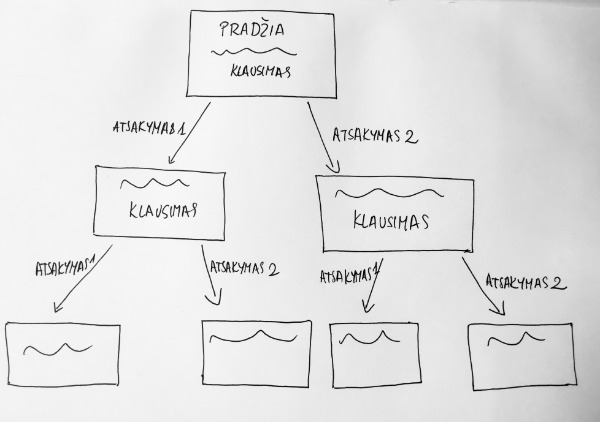 PRADŽIA
KLAUSIMAS
ATSAKYMAS 1
ATSAKYMAS 2
KLAUSIMAS
KLAUSIMAS
ATSAKYMAS 1
ATSAKYMAS 2
ATSAKYMAS 1
ATSAKYMAS 2